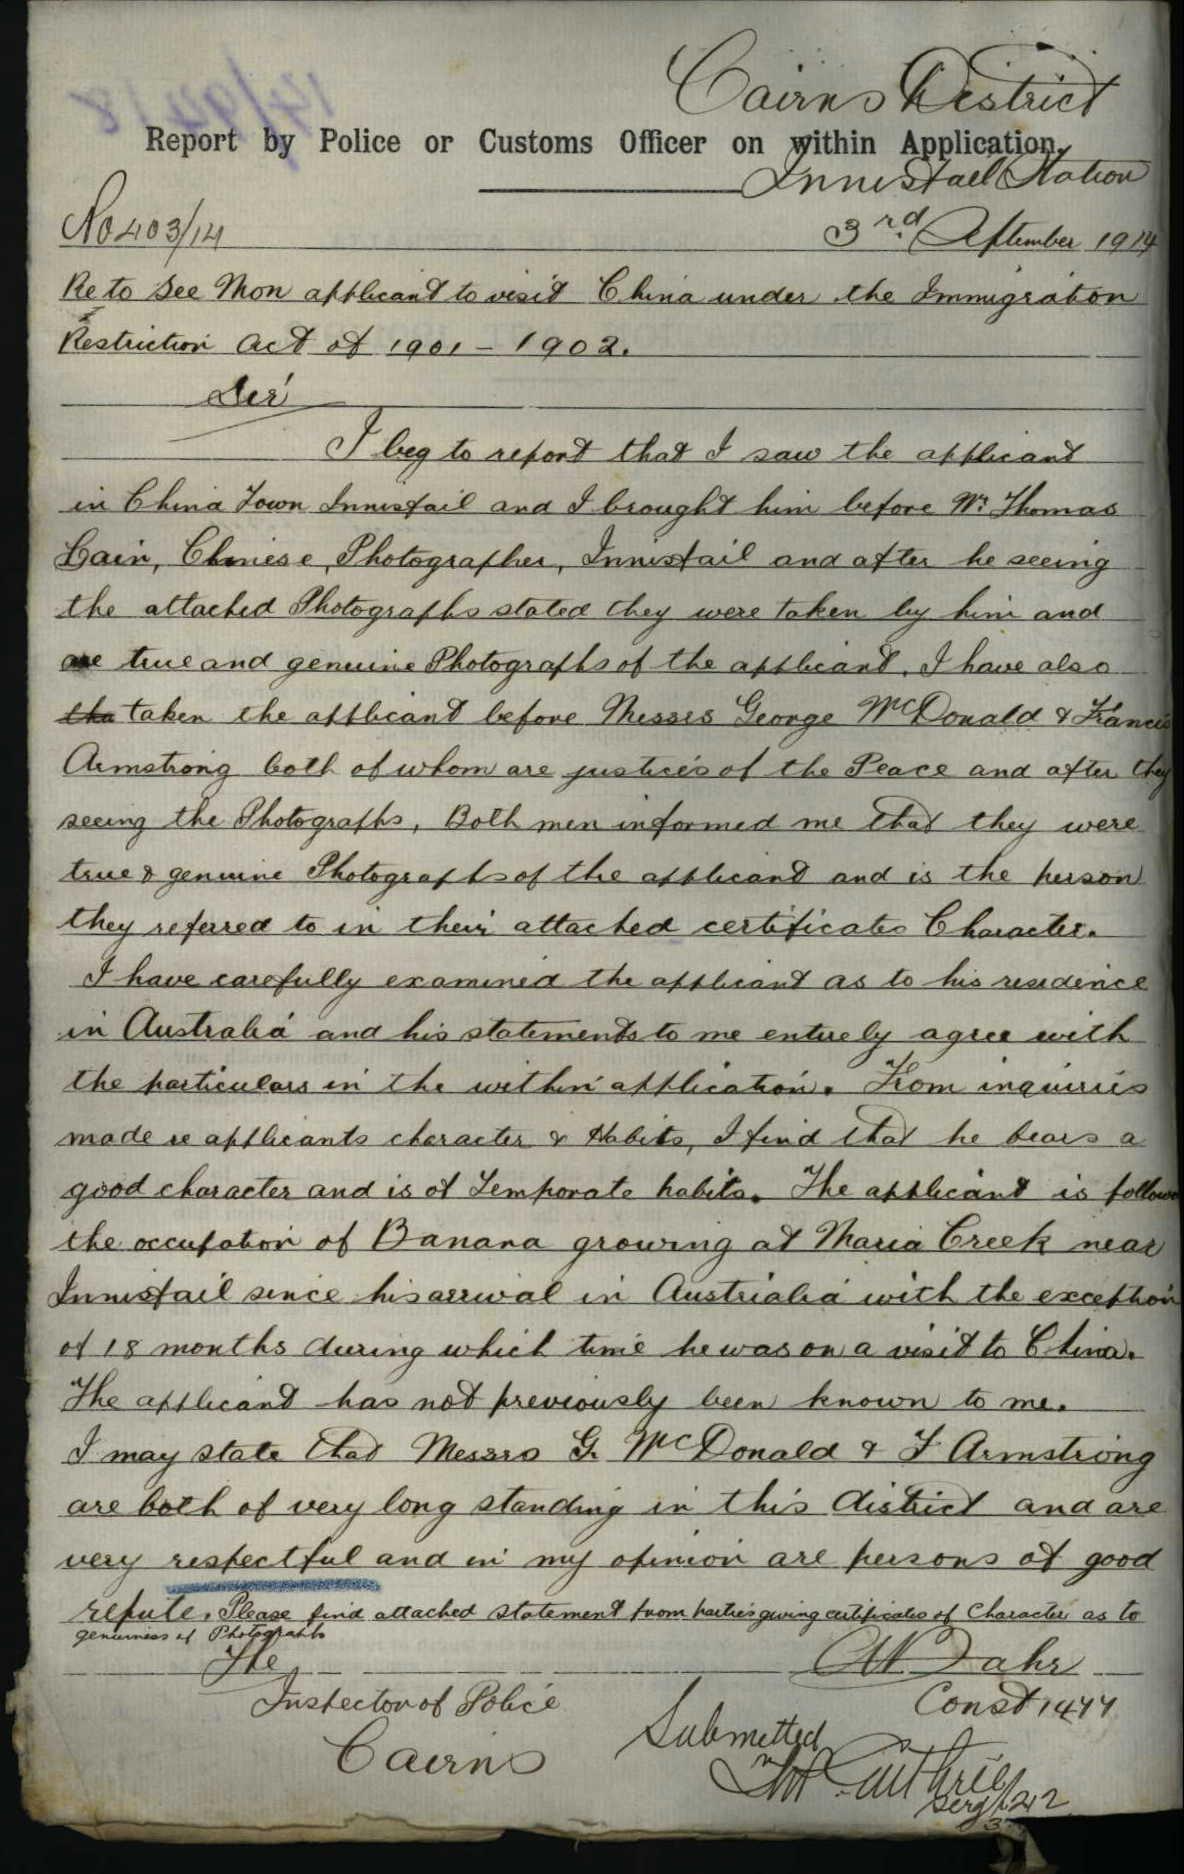 Cairns District
Report by Police or Customs Officer on within Application.
Innisfail Station
No 403/14
3rd September 1914
Re to See Mon applicant to visit China under the Immigration
Restriction Act of 1901 - 1902.
Sir
I beg to report that I saw the applicant
in China Town Innisfail and I brought him before Mr Thomas
Cain, Chinese, Photographer, Innisfail and after he seeing
the attached Photographs stated they were taken by him and
are true and genuine Photographs of the applicant. I have also
tha taken the applicant before Messrs George McDonald & Francis
Armstrong both of whom are justices of the Peace and after they
seeing the Photographs, Both men informed me that they were
true & genuine Photographs of the applicant and is the person
they referred to in their attached certificates Character.
I have carefully examined the applicant as to his residence
in Australia and his statements to me entirely agree with
the particulars in the within application. From inquiries
made re applicants character & Habits, I find that he bears a
good character and is of Temporate habits. The applicant is follow
the occupation of Banana growing at Maria Creek near
Innisfail since his arrival in Australia with the exception
of 18 months during which time he was on a visit to China.
The applicant has not previously been known to me.
I may state that Messrs G. McDonald & F Armstrong
are both of very long standing in this district and are
very respectful and in my opinion are persons of good
repute. Please find attached statement from parties giving certificates of Character as to
genuiness of Photographs
The
Inspector of Police
Const 1477
Cairns
Submitted
Guthrie
Sergt 242